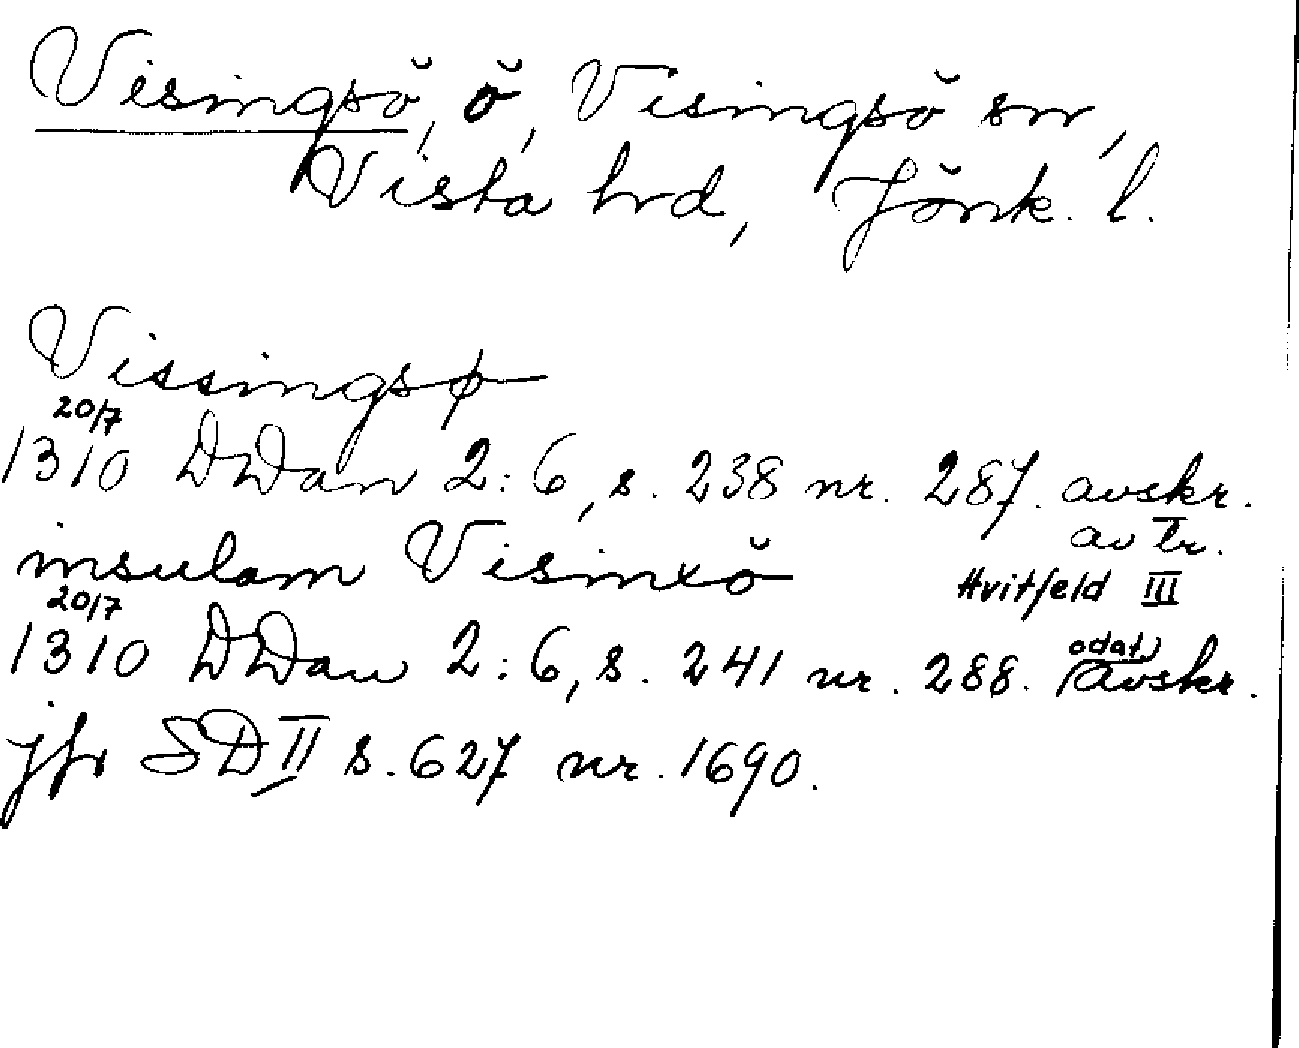 Visingsö, ö, Visingsö sn,
Vista hrd, Jönk. l.
Vissingsø
20/7
1310 DDan 2:6, s. 238 nr. 287. avskr.
av tr.
insulam Visinxö Hvitfeld III
20/7
1310 DDan 2:6, s. 241 nr. 288. odat. avskr.
jfr SD II s. 627 nr. 1690.